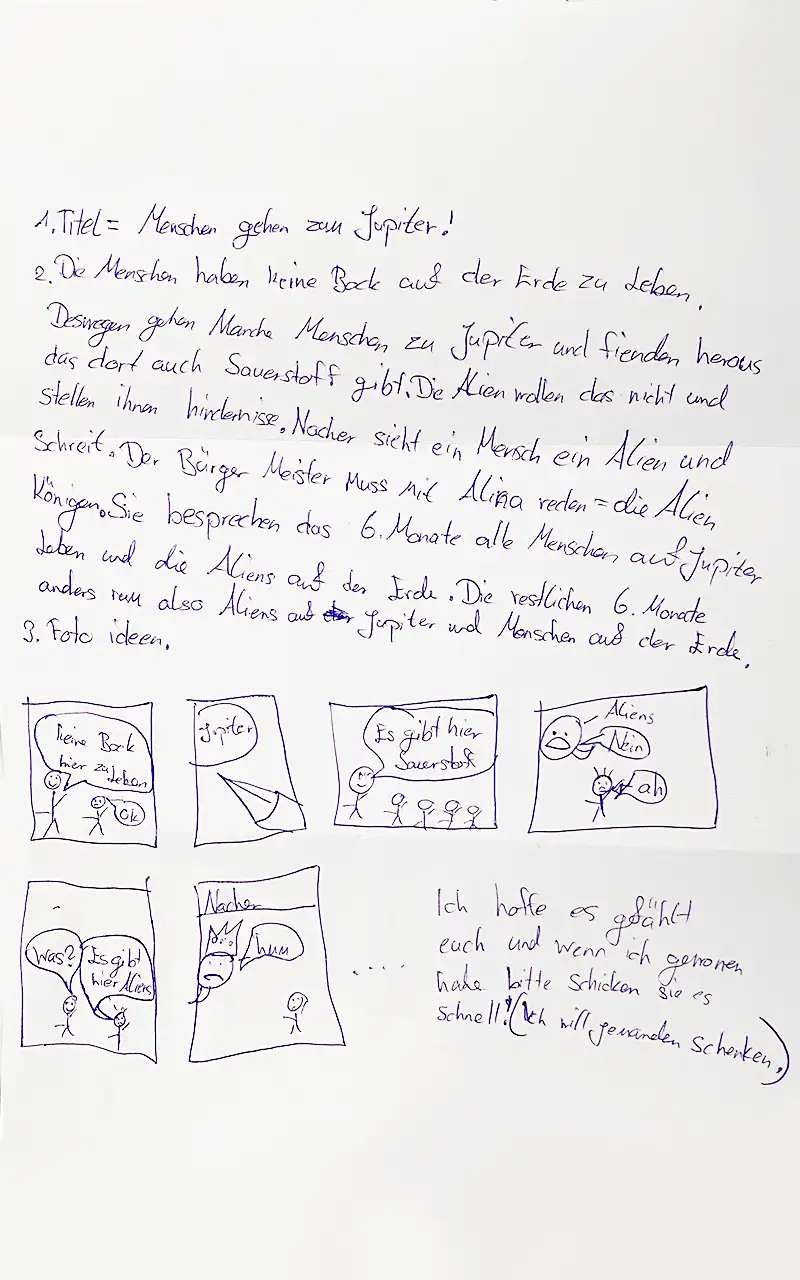 1. Titel = Menschen gehen zum Jupiter!
2. Die Menschen haben keine Bock auf der Erde zu Leben.
Deswegen gehen Manche Menschen zu Jupiter und fienden heraus
das dort auch Sauerstoff gibt. Die Alien wollen das nicht und
stellen ihnen hindernisse. Nacher sieht ein Mensch ein Alien und
Schreit. Der Bürger Meister Muss mit Alina reden = die Alien
Königen. Sie besprechen das 6. Monate alle Menschen auf Jupiter
Leben und die Aliens auf der Erde. Die restlichen 6. Monate
anders rum also Aliens auf Jupiter und Menschen auf der Erde.
3. Foto ideen.
keine Bock
hier zu Leben
Ok
Jupiter
Es gibt hier
Sauerstoff
Aliens
Nein
ah
Was?
Es gibt
hier Aliens
Nacher
hum
....
Ich hoffe es gefählt
euch und wenn ich gewonen
habe bitte Schicken sie es
schnell! (Ich will jemanden Schenken.)